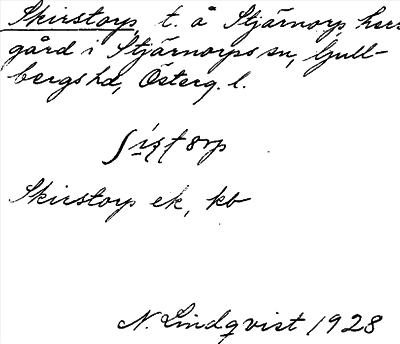 Skirstorp, t. å Stjärnorp, herr-
gård i Stjärnorps sn, Gull-
bergs hd, Österg. l.
Skirstorp ek, kb
N. Lindqvist 1928